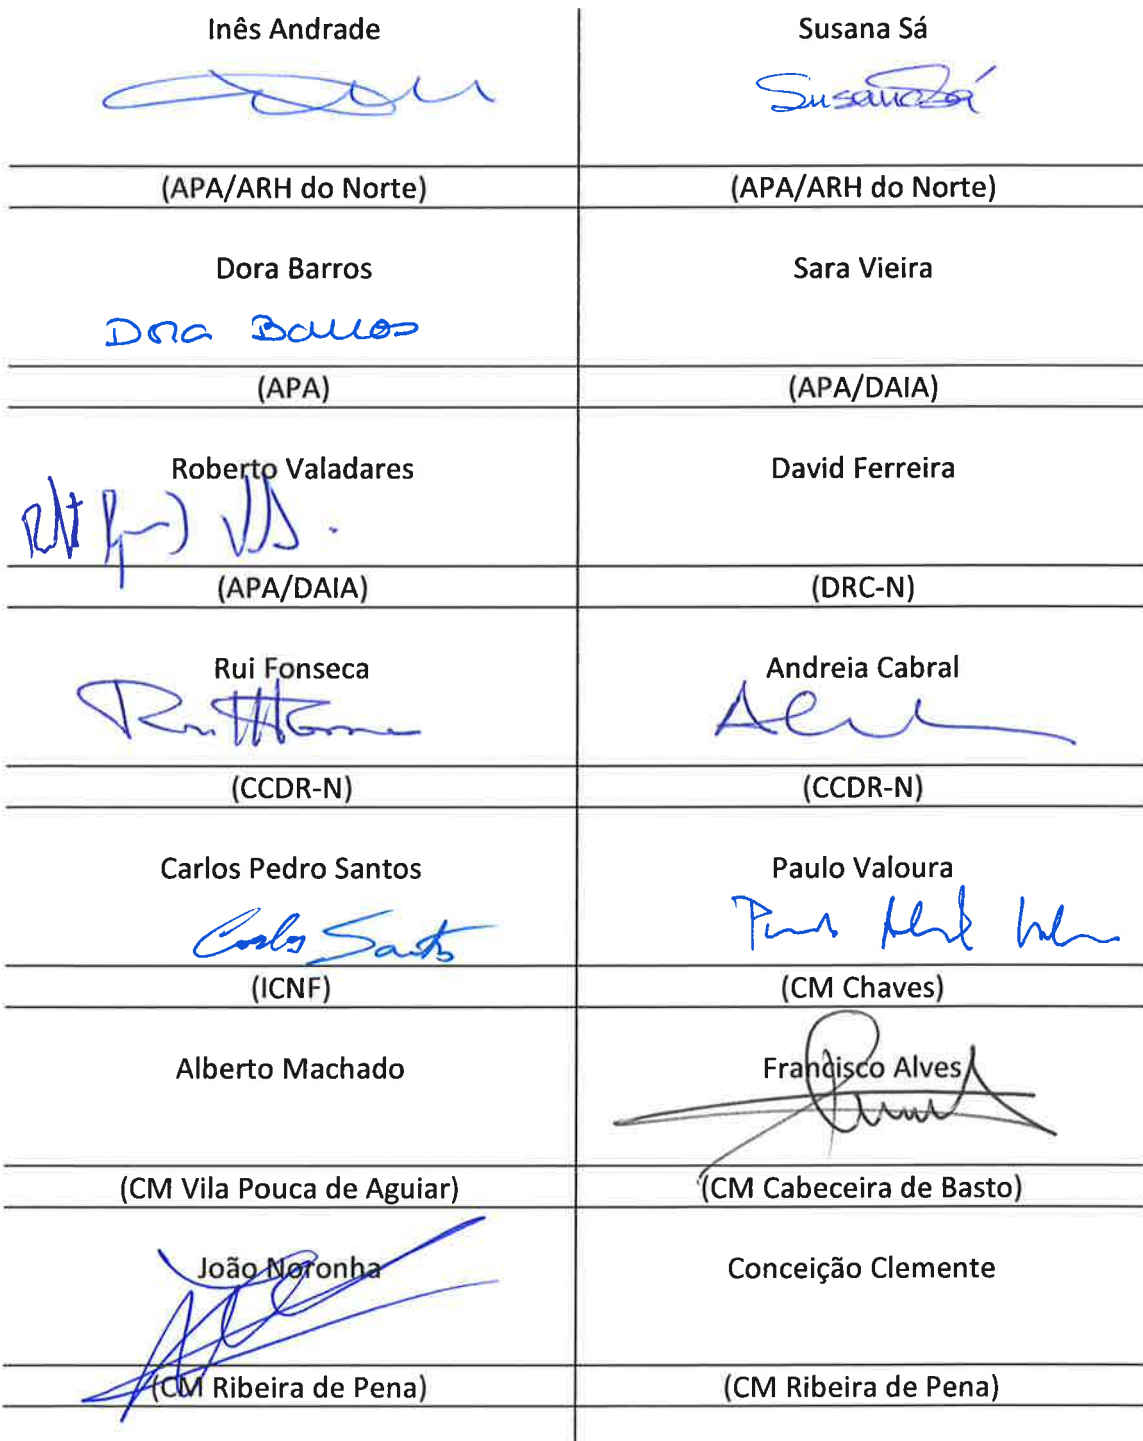 Inês Andrade
Susana Sá
Susana Sá
(APA/ARH do Norte)
(APA/ARH do Norte)
Dora Barros
Sara Vieira
Dora Barros
(APA)
(APA/DAIA)
Roberto Valadares
David Ferreira
(APA/DAIA)
(DRC-N)
Rui Fonseca
Andreia Cabral
(CCDR-N)
(CCDR-N)
Carlos Pedro Santos
Paulo Valoura
Carlos Santos
(ICNF)
(CM Chaves)
Alberto Machado
Francisco Alves
(CM Vila Pouca de Aguiar)
(CM Cabeceira de Basto)
João Noronha
Conceição Clemente
(CM Ribeira de Pena)
(CM Ribeira de Pena)